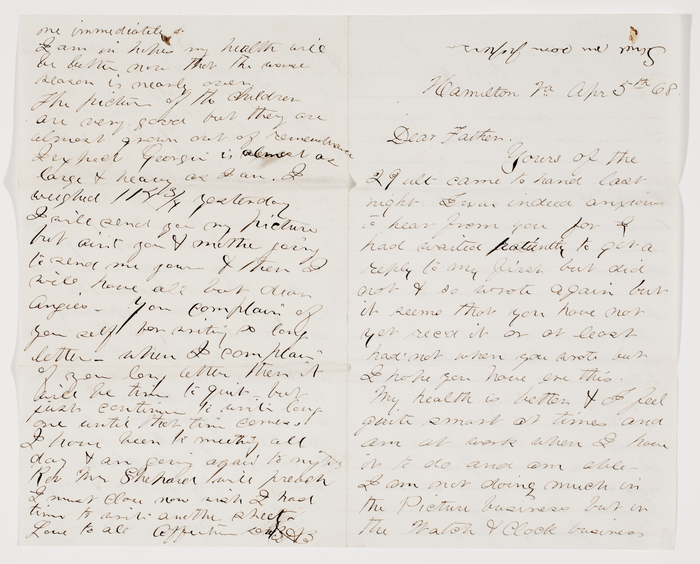 Hamilton Va Apr 5th 68
Dear Father.
Yours of the
29 ult came to hand last
night I was indeed anxious
to hear from you for I
had waited patiently to get a
reply to my first but did
not & so wrote again but
it seems that you have not
yet recd it or at least
had not when you wrote but
I hope you have ere this.
My health is better & I feel
quite smart at times and
am at work when I have
it to do and am able
I am not doing much in
the Picture business but in
the Watch & Clock business
one immediately
I am in hopes my health will
be better now that the worse
season is nearly over.
The picture of the children
are very good but they are
almost grown out of remembrance
I expect Georgie is almost as
large & heavy as I am I
weighed 112 3/4 yesterday
I will send you my picture
but aint you & mother going
to send me yours & then I
will have all but dear
Angies. You complain of
your self for writing so long
letter - when I complain
of your long letter then it
will be time to quit. but
just continue to write long
one until that time comes
I have been to meeting all
day & am going again to night
Rev Mr Shepard will preach
I must close now wish I had
time to write another sheet
Love to all Affection son